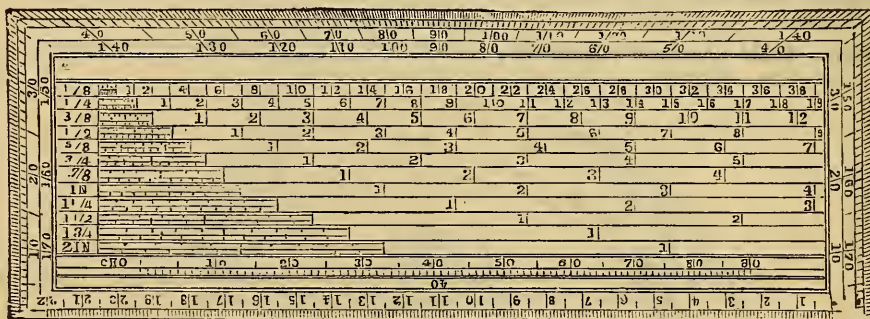 4|0 5|0 6|0 7|0 8|0 9|0 1|00 1|10 1|20 1|30 1|40
1|40 1|30 1|20 1|10 1|00 9|0 8|0 7|0 6|0 5|0 4|0
1/8 1 2 4 6 8 10 12 14 16 18 20 22 24 26 28 30 32 34 36 38
1/4 1 2 3 4 5 6 7 8 9 10 11 12 13 14 15 16 17 18 19
3/8 1 2 3 4 5 6 7 8 9 10 11 12
1/2 1 2 3 4 5 6 7 8 9
5/8 1 2 3 4 5 6 7
3/4 1 2 3 4 5
7/8 1 2 3 4
1 IN 1 2 3 4
1 1/4 1 2 3
1 1/2 1 2
1 3/4 1
2 IN 1
CHO 1|0 2|0 3|0 4|0 5|0 6|0 7|0 8|0 9|0
40
21 20 19 18 17 16 15 14 13 12 11 10 9 8 7 6 5 4 3 2 1
3|0 2|0 1|0
1|50 1|60 1|70
3|0 2|0 1|0
1|50 1|60 1|70